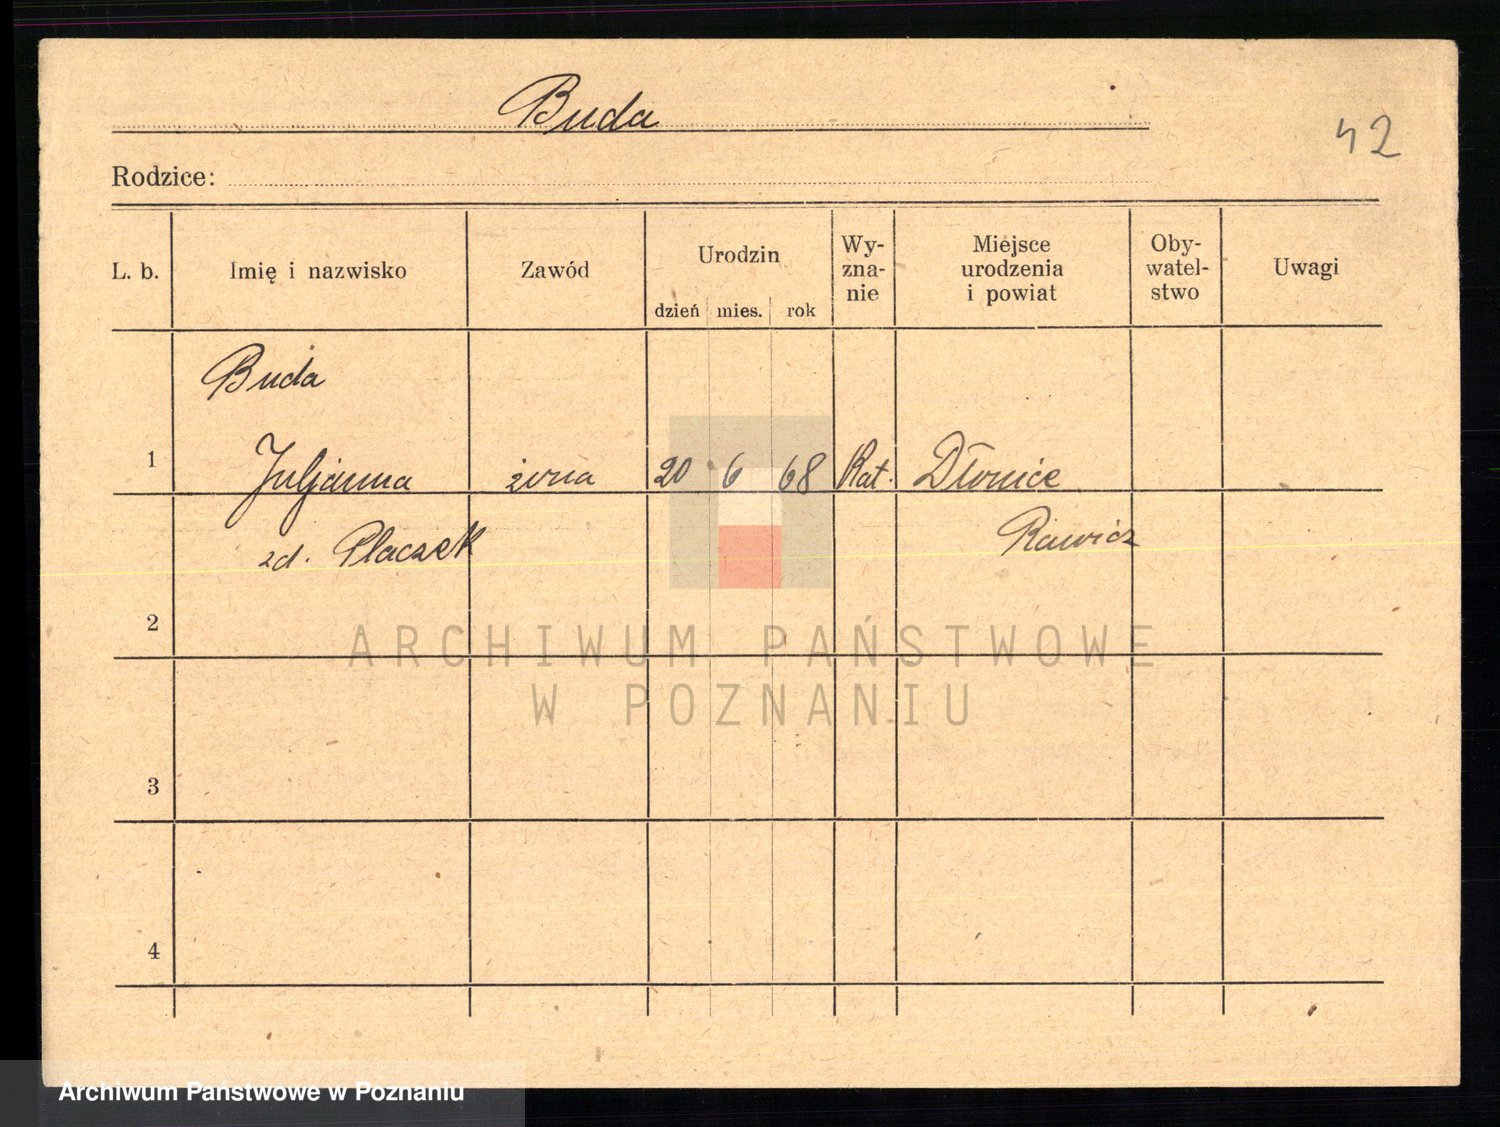 Buda
42
Rodzice:
L. b. Imię i nazwisko Zawód Urodzin dzień mies. rok Wy-zna-nie Miejsce urodzenia i powiat Oby-watel-stwo Uwagi
Buda
1 Juljanna żona 20 6 68 Kat. Dłonice
zd. Placzek Rawicz
2
3
4
ARCHIWUM PAŃSTWOWE
W POZNANIU
Archiwum Państwowe w Poznaniu